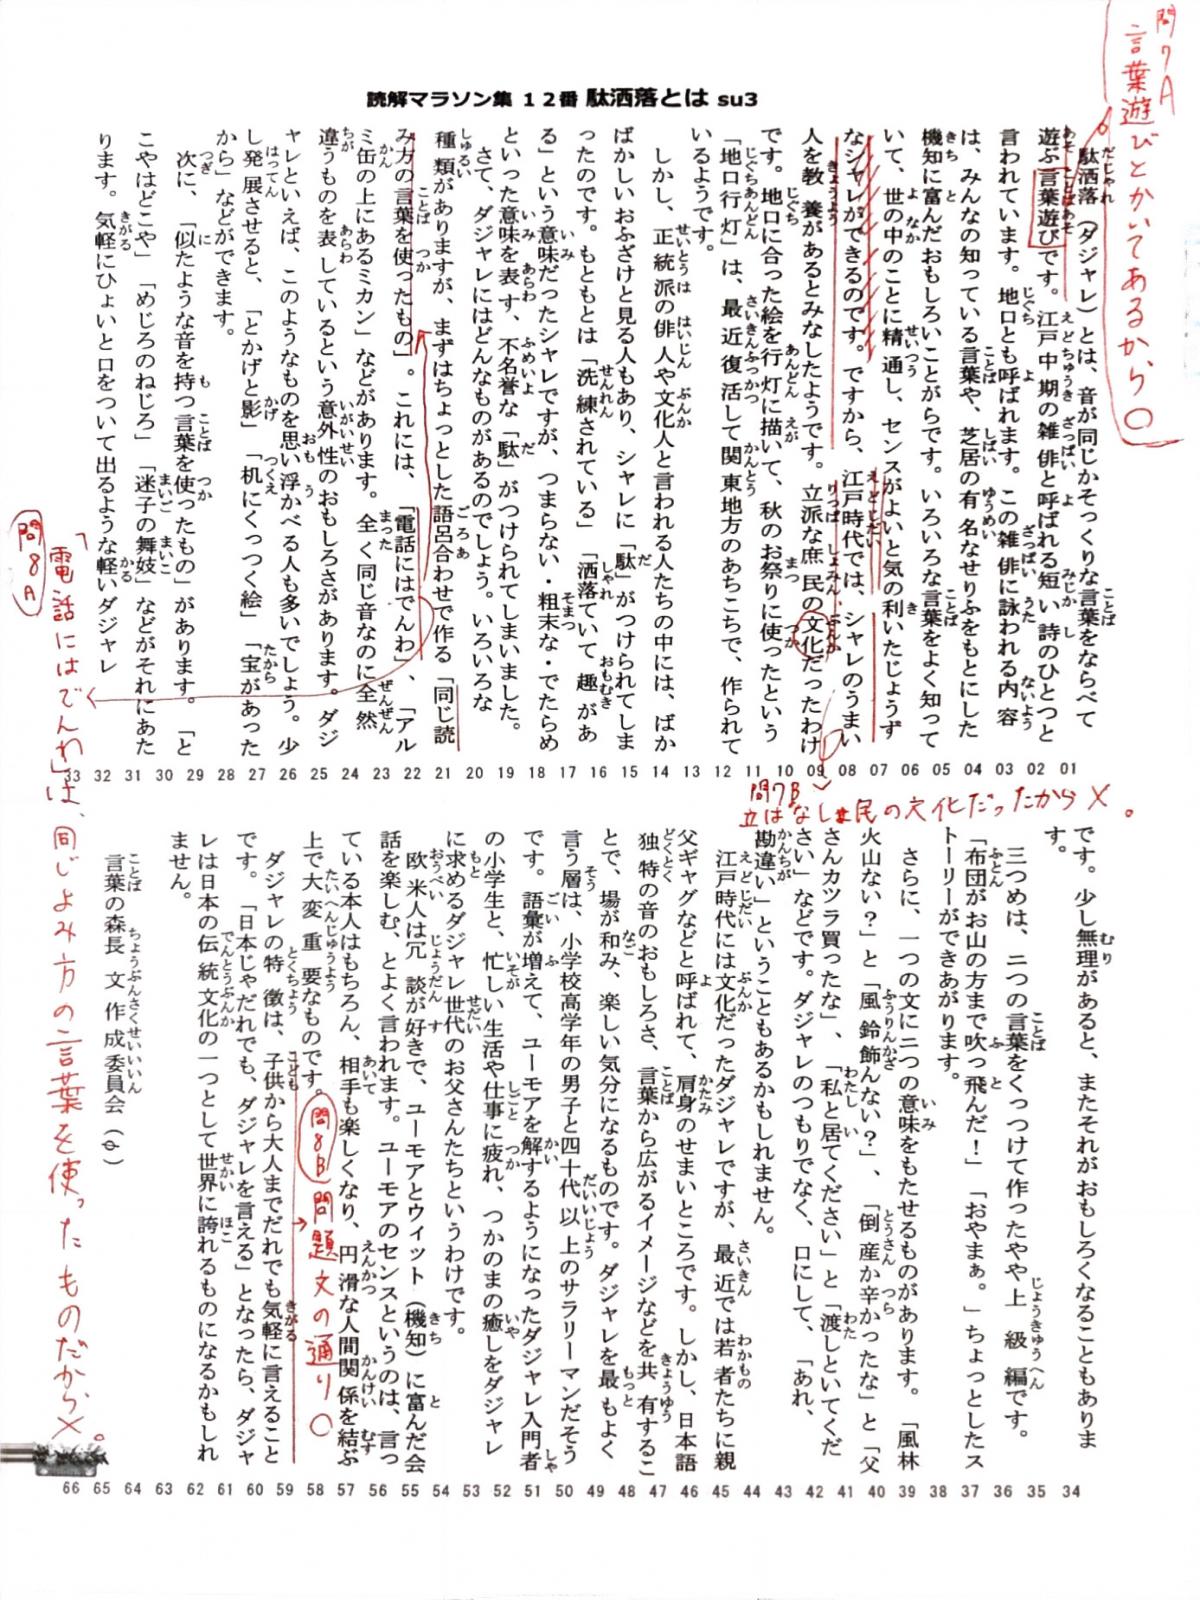 読解マラソン集 12番 駄洒落とは su3
駄洒落（ダジャレ）とは、音が同じかそっくりな言葉をならべて
遊ぶ言葉遊びです。江戸中期の雑俳と呼ばれる短い詩のひとつと
言われています。地口とも呼ばれます。この雑俳に詠われる内容
は、みんなの知っている言葉や、芝居の有名なせりふをもとにした
機知に富んだおもしろいことがらです。いろいろな言葉をよく知って
いて、世の中のことに精通し、センスがよいと気の利いたじょうず
なシャレができるのです。ですから、江戸時代では、シャレのうまい
人を教養があるとみなしたようです。立派な庶民の文化だったわけ
です。地口に合った絵を行灯に描いて、秋のお祭りに使ったという
「地口行灯」は、最近復活して関東地方のあちこちで、作られて
いるようです。
しかし、正統派の俳人や文化人と言われる人たちの中には、ばか
ばかしいおふざけと見る人もあり、シャレに「駄」がつけられてしま
ったのです。もともとは「洗練されている」「洒落ていて趣があ
る」という意味だったシャレですが、つまらない・粗末な・でたらめ
といった意味を表す、不名誉な「駄」がつけられてしまいました。
さて、ダジャレにはどんなものがあるのでしょう。いろいろな
種類がありますが、まずはちょっとした語呂合わせで作る「同じ読
み方の言葉を使ったもの」。これには、「電話にはでんわ」、「アル
ミ缶の上にあるミカン」などがあります。全く同じ音なのに全然
違うものを表しているという意外性のおもしろさがあります。ダジ
ャレといえば、このようなものを思い浮かべる人も多いでしょう。少
し発展させると、「とかげと影」「机にくっつく絵」「宝があった
から」などができます。
次に、「似たような音を持つ言葉を使ったもの」があります。「と
こやはどこや」「めじろのねじろ」「迷子の舞妓」などがそれにあた
ります。気軽にひょいと口をついて出るような軽いダジャレ
33 32 31 30 29 28 27 26 25 24 23 22 21 20 19 18 17 16 15 14 13 12 11 10 09 08 07 06 05 04 03 02 01
です。少し無理があると、またそれがおもしろくなることもありま
す。
三つめは、二つの言葉をくっつけて作ったやや上級編です。
「布団がお山の方まで吹っ飛んだ！」「おやまぁ。」ちょっとしたス
トーリーができあがります。
さらに、一つの文に二つの意味をもたせるものがあります。「風林
火山ない？」と「風鈴飾んない？」、「倒産か辛かったな」と「父
さんカツラ買ったな」、「私と居てください」と「渡しといてくだ
さい」などです。ダジャレのつもりでなく、口にして、「あれ、
勘違い」ということもあるかもしれません。
江戸時代には文化だったダジャレですが、最近では若者たちに親
父ギャグなどと呼ばれて、肩身のせまいところです。しかし、日本語
独特の音のおもしろさ、言葉から広がるイメージなどを共有するこ
とで、場が和み、楽しい気分になるものです。ダジャレを最もよく
言う層は、小学校高学年の男子と四十代以上のサラリーマンだそう
です。語彙が増えて、ユーモアを解するようになったダジャレ入門者
の小学生と、忙しい生活や仕事に疲れ、つかのまの癒しをダジャレ
に求めるダジャレ世代のお父さんたちというわけです。
欧米人は冗談が好きで、ユーモアとウィット（機知）に富んだ会
話を楽しむ、とよく言われます。ユーモアのセンスというのは、言っ
ている本人はもちろん、相手も楽しくなり、円滑な人間関係を結ぶ
上で大変重要なものです。
ダジャレの特徴は、子供から大人までだれでも気軽に言えること
です。「日本じゃだれでも、ダジャレを言える」となったら、ダジャ
レは日本の伝統文化の一つとして世界に誇れるものになるかもしれ
ません。
言葉の森長文作成委員会（φ）
66 65 64 63 62 61 60 59 58 57 56 55 54 53 52 51 50 49 48 47 46 45 44 43 42 41 40 39 38 37 36 35 34
問7A
言葉遊びとかいてあるから○
問7B
立はなしょ民の文化だったからX。
問8A
「電話にはでんわ」は、同じよみ方の言葉を使ったものだからX。
問8B
問題文の通り○